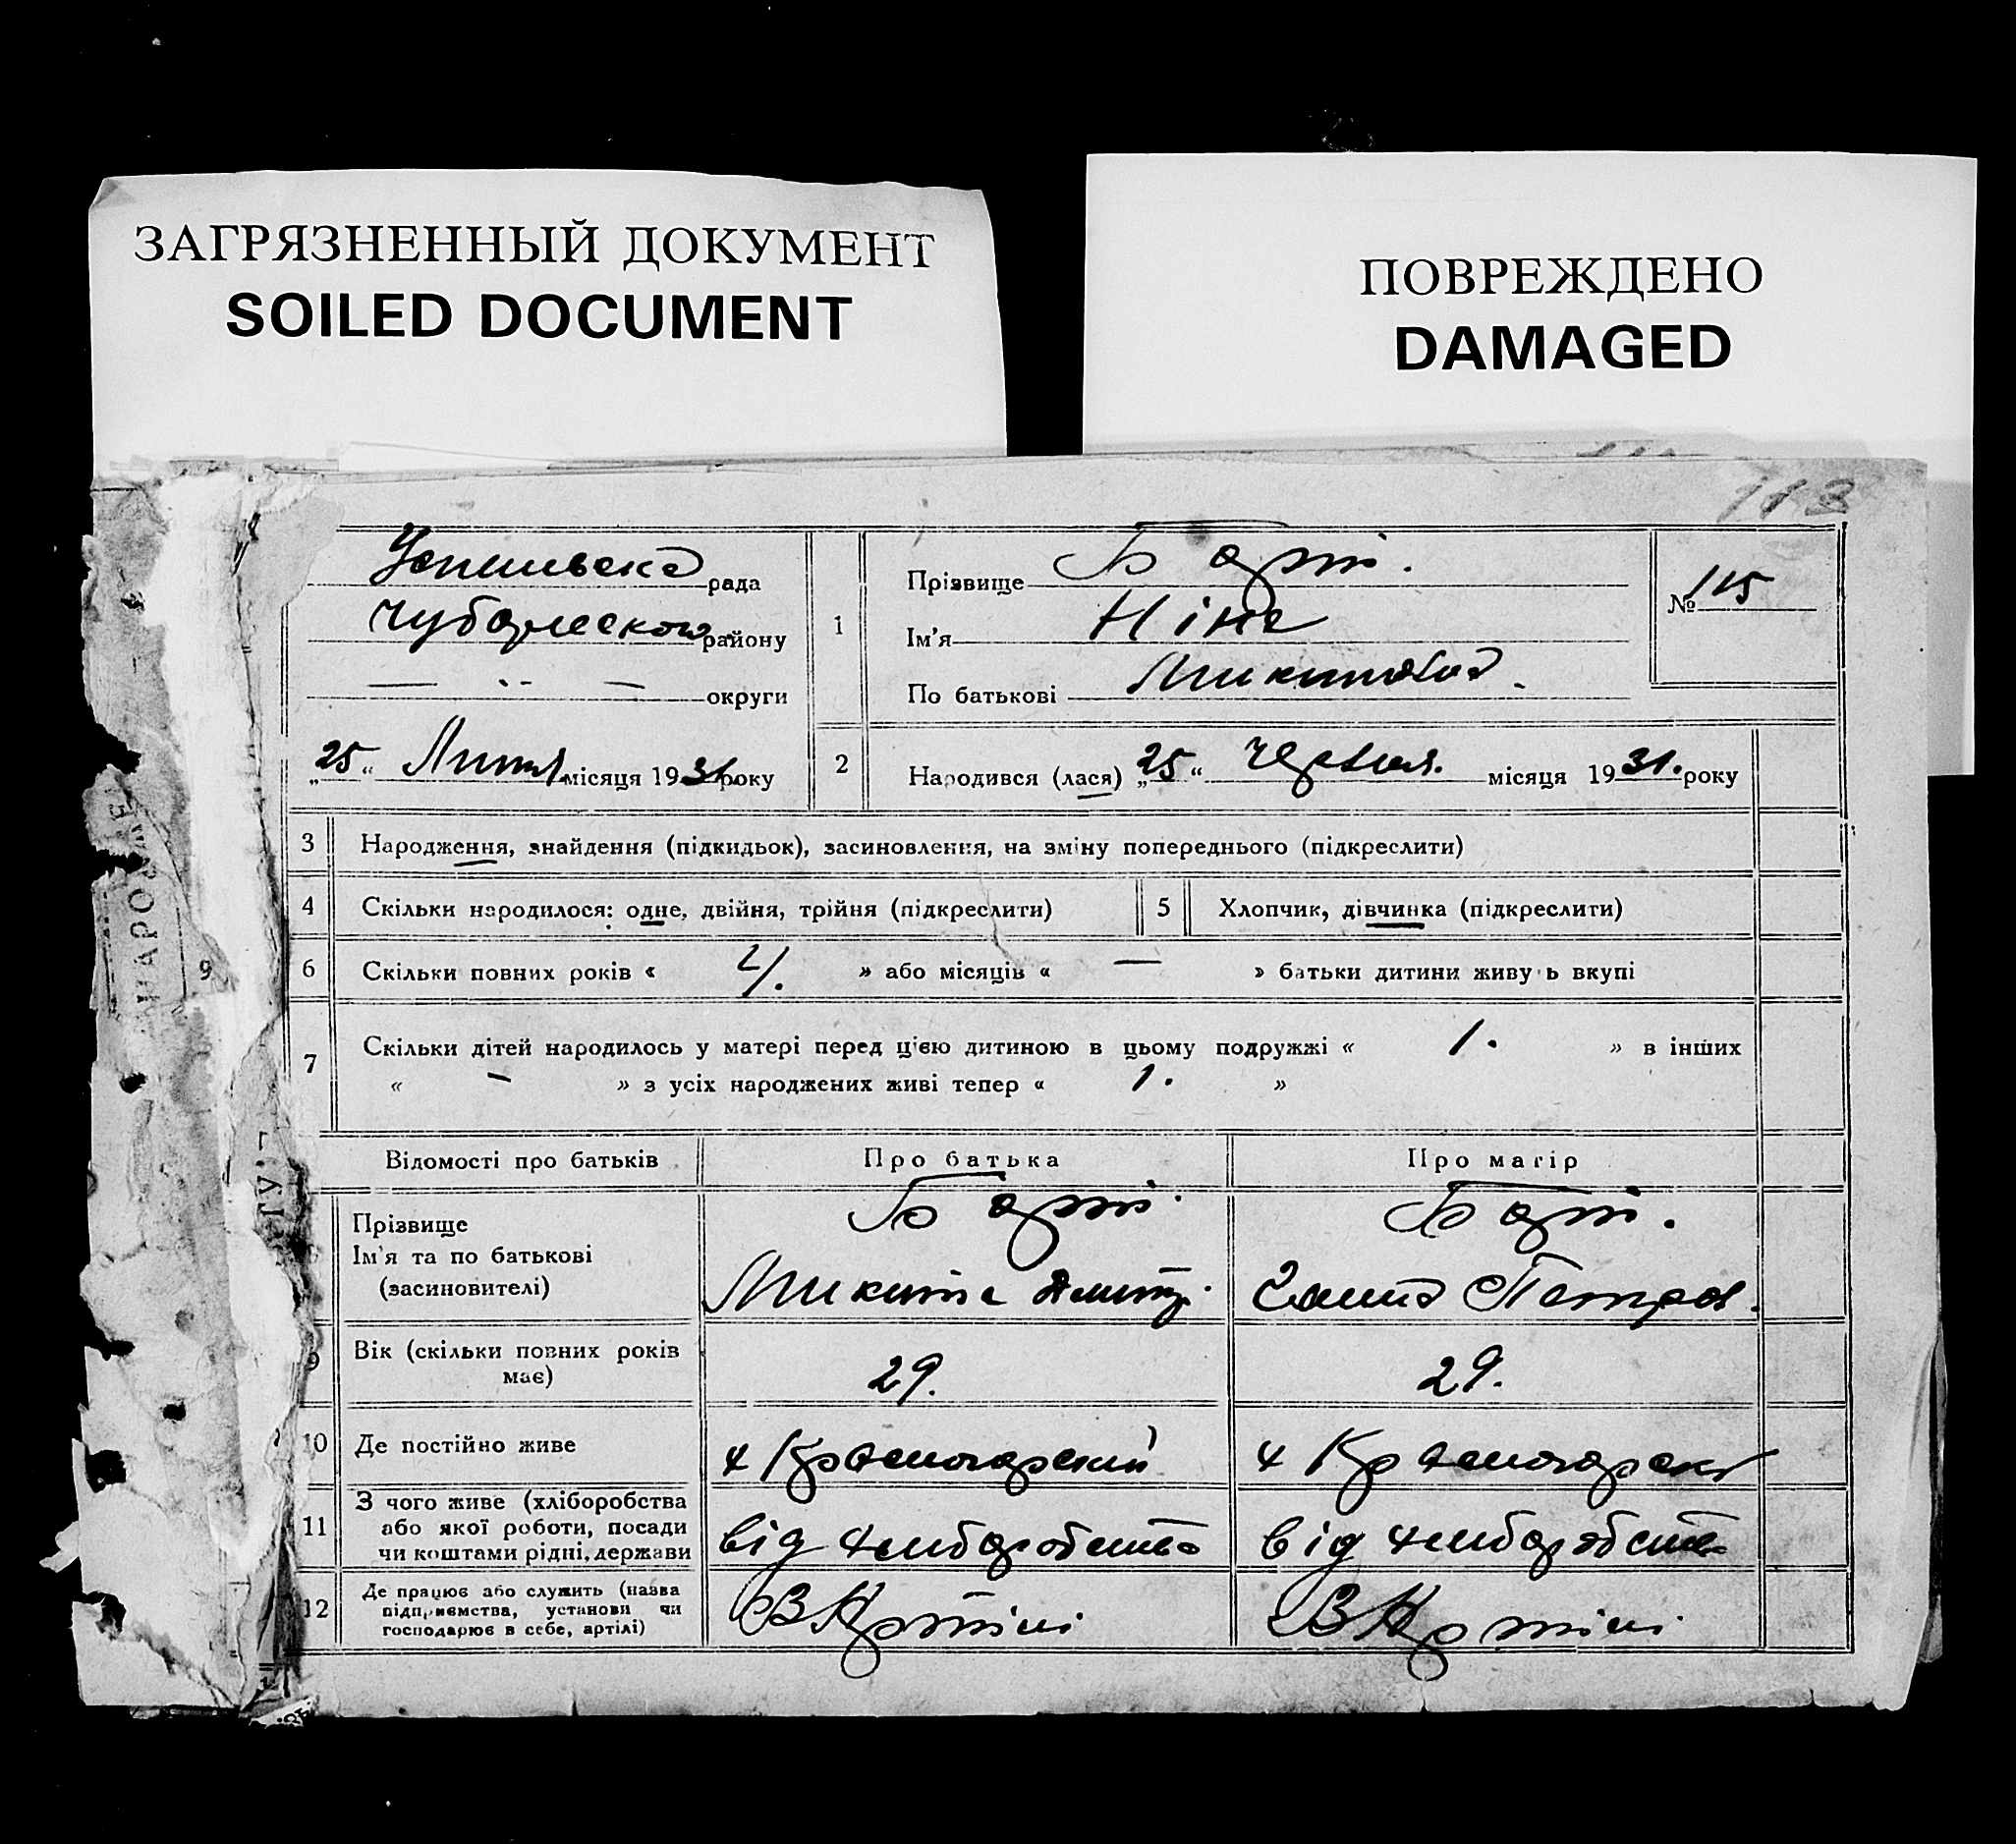 ЗАГРЯЗНЕННЫЙ ДОКУМЕНТ
SOILED DOCUMENT
ПОВРЕЖДЕНО
DAMAGED
113
рада
Чубарського району
— .. — округи
„25“ Липня місяця 1931 року
1
Прізвище
Ім'я Ніна
По батькові Микитовна.
№ 115
2
Народився (лася) „25“ червня. місяця 1931. року
3 Народження, знайдення (підкидьок), засиновлення, на зміну попереднього (підкреслити)
4 Скільки народилося: одне, двійня, трійня (підкреслити) 5 Хлопчик, дівчинка (підкреслити)
9
6 Скільки повних років « » або місяців « — » батьки дитини живуть вкупі
7 Скільки дітей народилось у матері перед цією дитиною в цьому подружжі « 1. » в інших
« - » з усіх народжених живі тепер « 1. »
Відомості про батьків Про батька Про матір
Прізвище
Ім'я та по батькові
(засиновителі)
Микита Дмитр. Петров.
9 Вік (скільки повних років
має)
29. 29.
10 Де постійно живе
х Красноярский х
11 З чого живе (хліборобства
або якої роботи, посади
чи коштами рідні, держави
від хліборобства від хліборобства
12 Де працює або служить (назва
підприємства, установи чи
господарює в себе, артілі)
В Артілі В Артілі